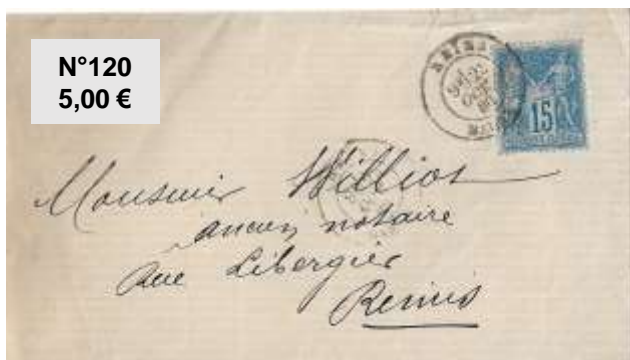 N°120
5,00 €
REIMS
15
Monsieur Williot
ancien notaire
Rue Libergier
Reims